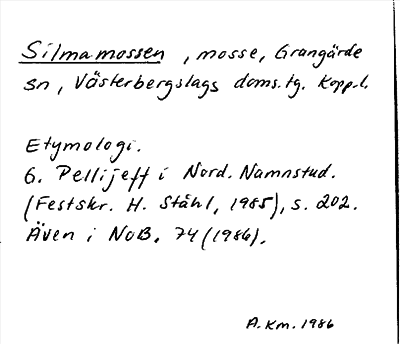 Silmamossen, mosse, Grangärde
sn, Västerbergslags doms.tg. Kopp.l.
Etymologi.
G. Pellijeff i Nord. Namnstud.
(Festskr. H. Ståhl, 1985), s. 202.
Även i NoB. 74 (1986).
A.Km. 1986